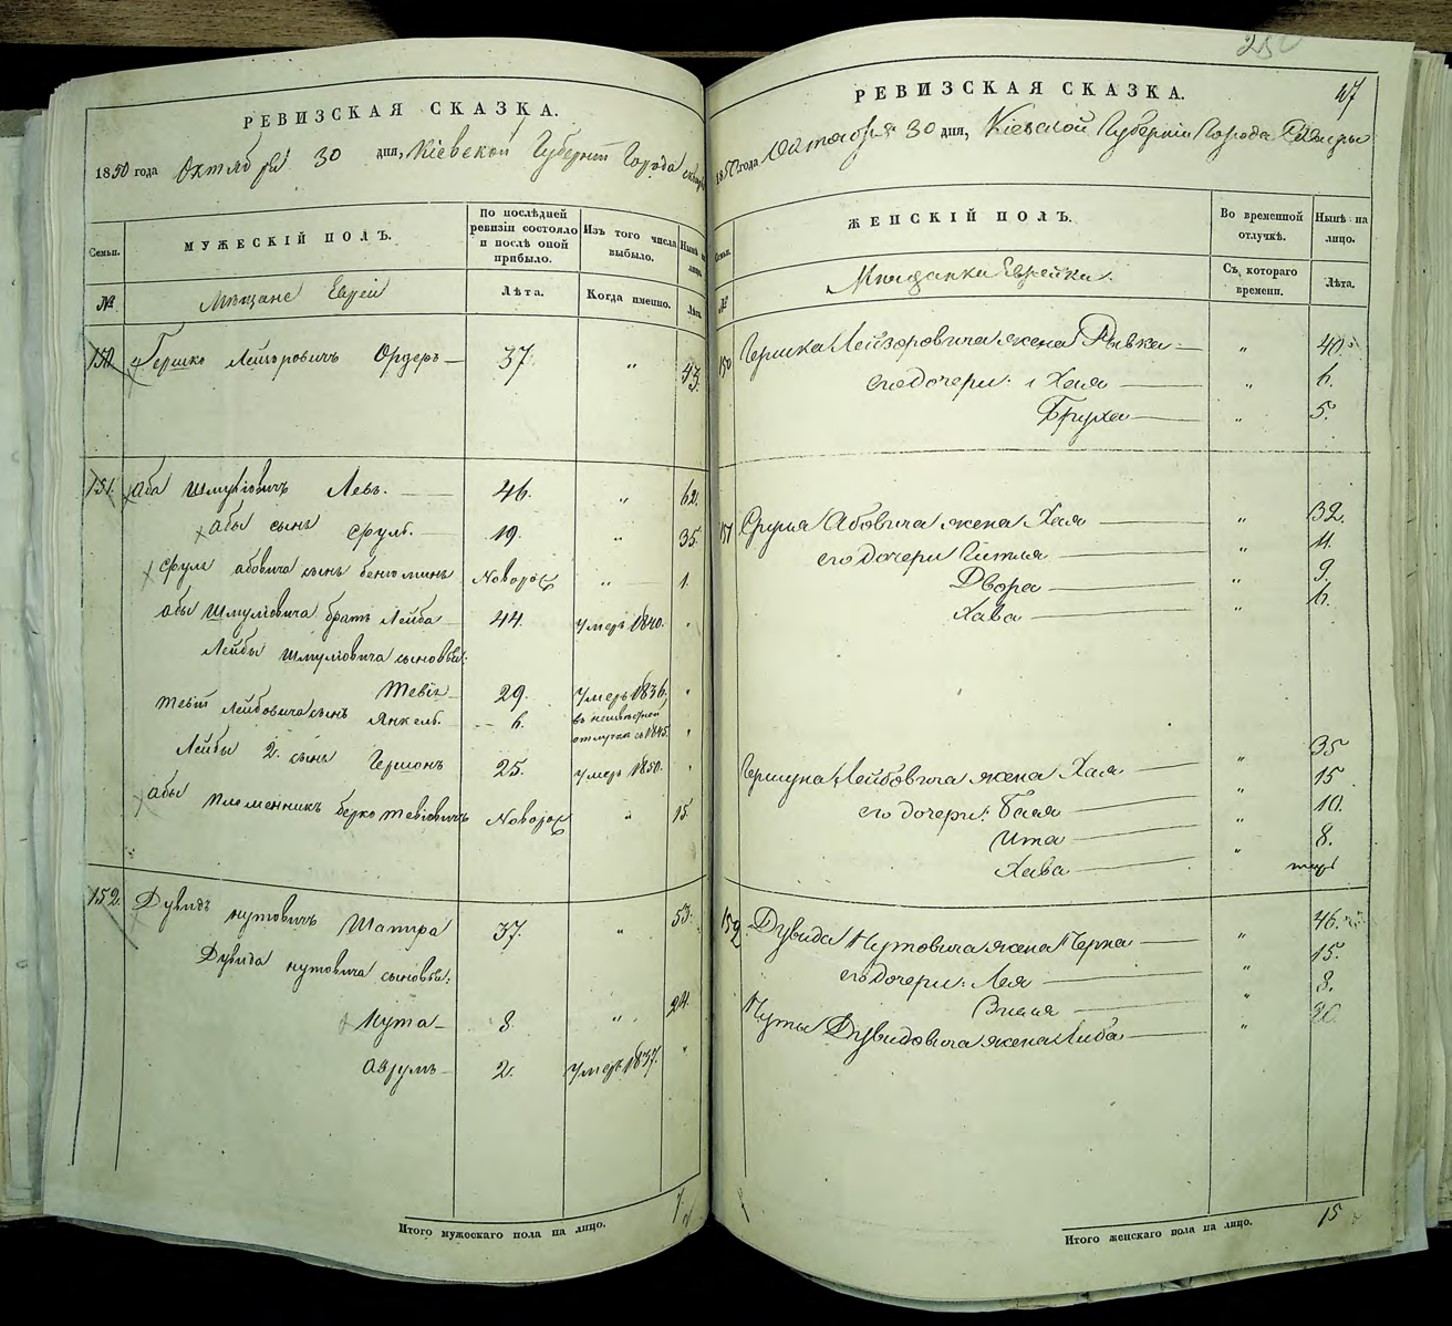 РЕВИЗСКАЯ СКАЗКА.
1850 года Октября 30 дня, Кіевской Губерніи Города
Семьи.
МУЖЕСКІЙ ПОЛЪ.
По послѣдней ревизіи состояло и послѣ оной прибыло.
Изъ того числа выбыло.
Нынѣ на лицо.
№
Мѣщане Евреи
Лѣта.
Когда именно.
Лѣта.
150. Гершко Лейзоровичъ Ордеръ — 37. „ 43.
151. Аба Шмуліовичъ Левъ. — 46. „ 62.
Абы сынъ Сруль. — 19. „ 35.
Сруля Абовича сынъ Беніоминъ Новорож „ — 1.
Абы Шмуліовича братъ Лейба — 44. Умеръ 1840. „
Лейбы Шмуліовича сыновья:
Тевій — 29. Умеръ 1836. „
Тевія Лейбовича сынъ Янкель. — 6. въ неизвѣстной отлучкѣ съ 1845. „
Лейбы 2. сынъ Гершонъ 25. Умеръ 1850. „
Абы племенникъ Берко Тевіовичъ Новорож „ 15.
152. Дувидъ Нутовичъ Шапира 37. „ 53.
Дувида Нутовича сыновья:
Нута — 8. „ 24.
Аврумъ — 2. Умеръ 1837. „
Итого мужескаго пола на лицо. 7.
47
РЕВИЗСКАЯ СКАЗКА.
1850 года Октября 30 дня, Кіевской Губерніи Города Сквиры
Семьи.
ЖЕНСКІЙ ПОЛЪ.
Во временной отлучкѣ.
Нынѣ на лицо.
№
Мѣщанки Еврейки.
Съ котораго времени.
Лѣта.
150 Гершка Лейзоровича жена Рывка — „ 40.
его дочери: 1 Хая — „ 6.
Бруха — „ 5.
151 Сруля Абовича жена Хая — „ 32.
его дочери Гитля — „ 11.
Двора — „ 9.
Хава — „ 6.
Гершуна Лейбовича жена Хая — „ 35
его дочери: Бася — „ 15
Ита — „ 10.
Хава — „ 8.
152. Дувида Нутовича жена Черна — „ 46.
его дочери: Лея — „ 15.
— „ 8.
Нуты Дувидовича жена Либа — „ 20.
Итого женскаго пола на лицо. 15